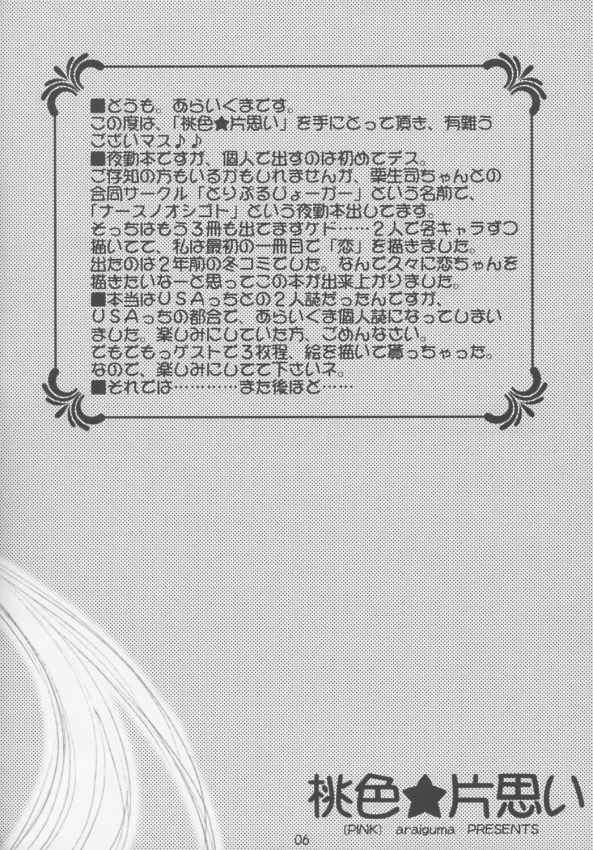 ■どうも。あらいぐまです。
この度は、「桃色★片思い」を手にとって頂き、有難う
ございマス♪♪
■夜勤本ですが、個人で出すのは初めてデス。
ご存知の方もいるかもしれませんが、栗生司ちゃんとの
合同サークル「とりぷるじょーカー」という名前で、
「ナースノオシゴト」という夜勤本出してます。
そっちはもう3冊も出てますケド……2人で各キャラずつ
描いてて、私は最初の一冊目で「恋」を描きました。
出たのは2年前の冬コミでした。なんで久々に恋ちゃんを
描きたいなーと思ってこの本が出来上がりました。
■本当はUSAっちとの2人誌だったんですが、
USAっちの都合で、あらいぐま個人誌になってしまい
ました。楽しみにしていた方、ごめんなさい。
でもでもっゲストで3枚程、絵を描いて貰っちゃった。
なので、楽しみにしてて下さいネ。
■それでは…………また後ほど……
桃色★片思い
[PINK] araiguma PRESENTS
06